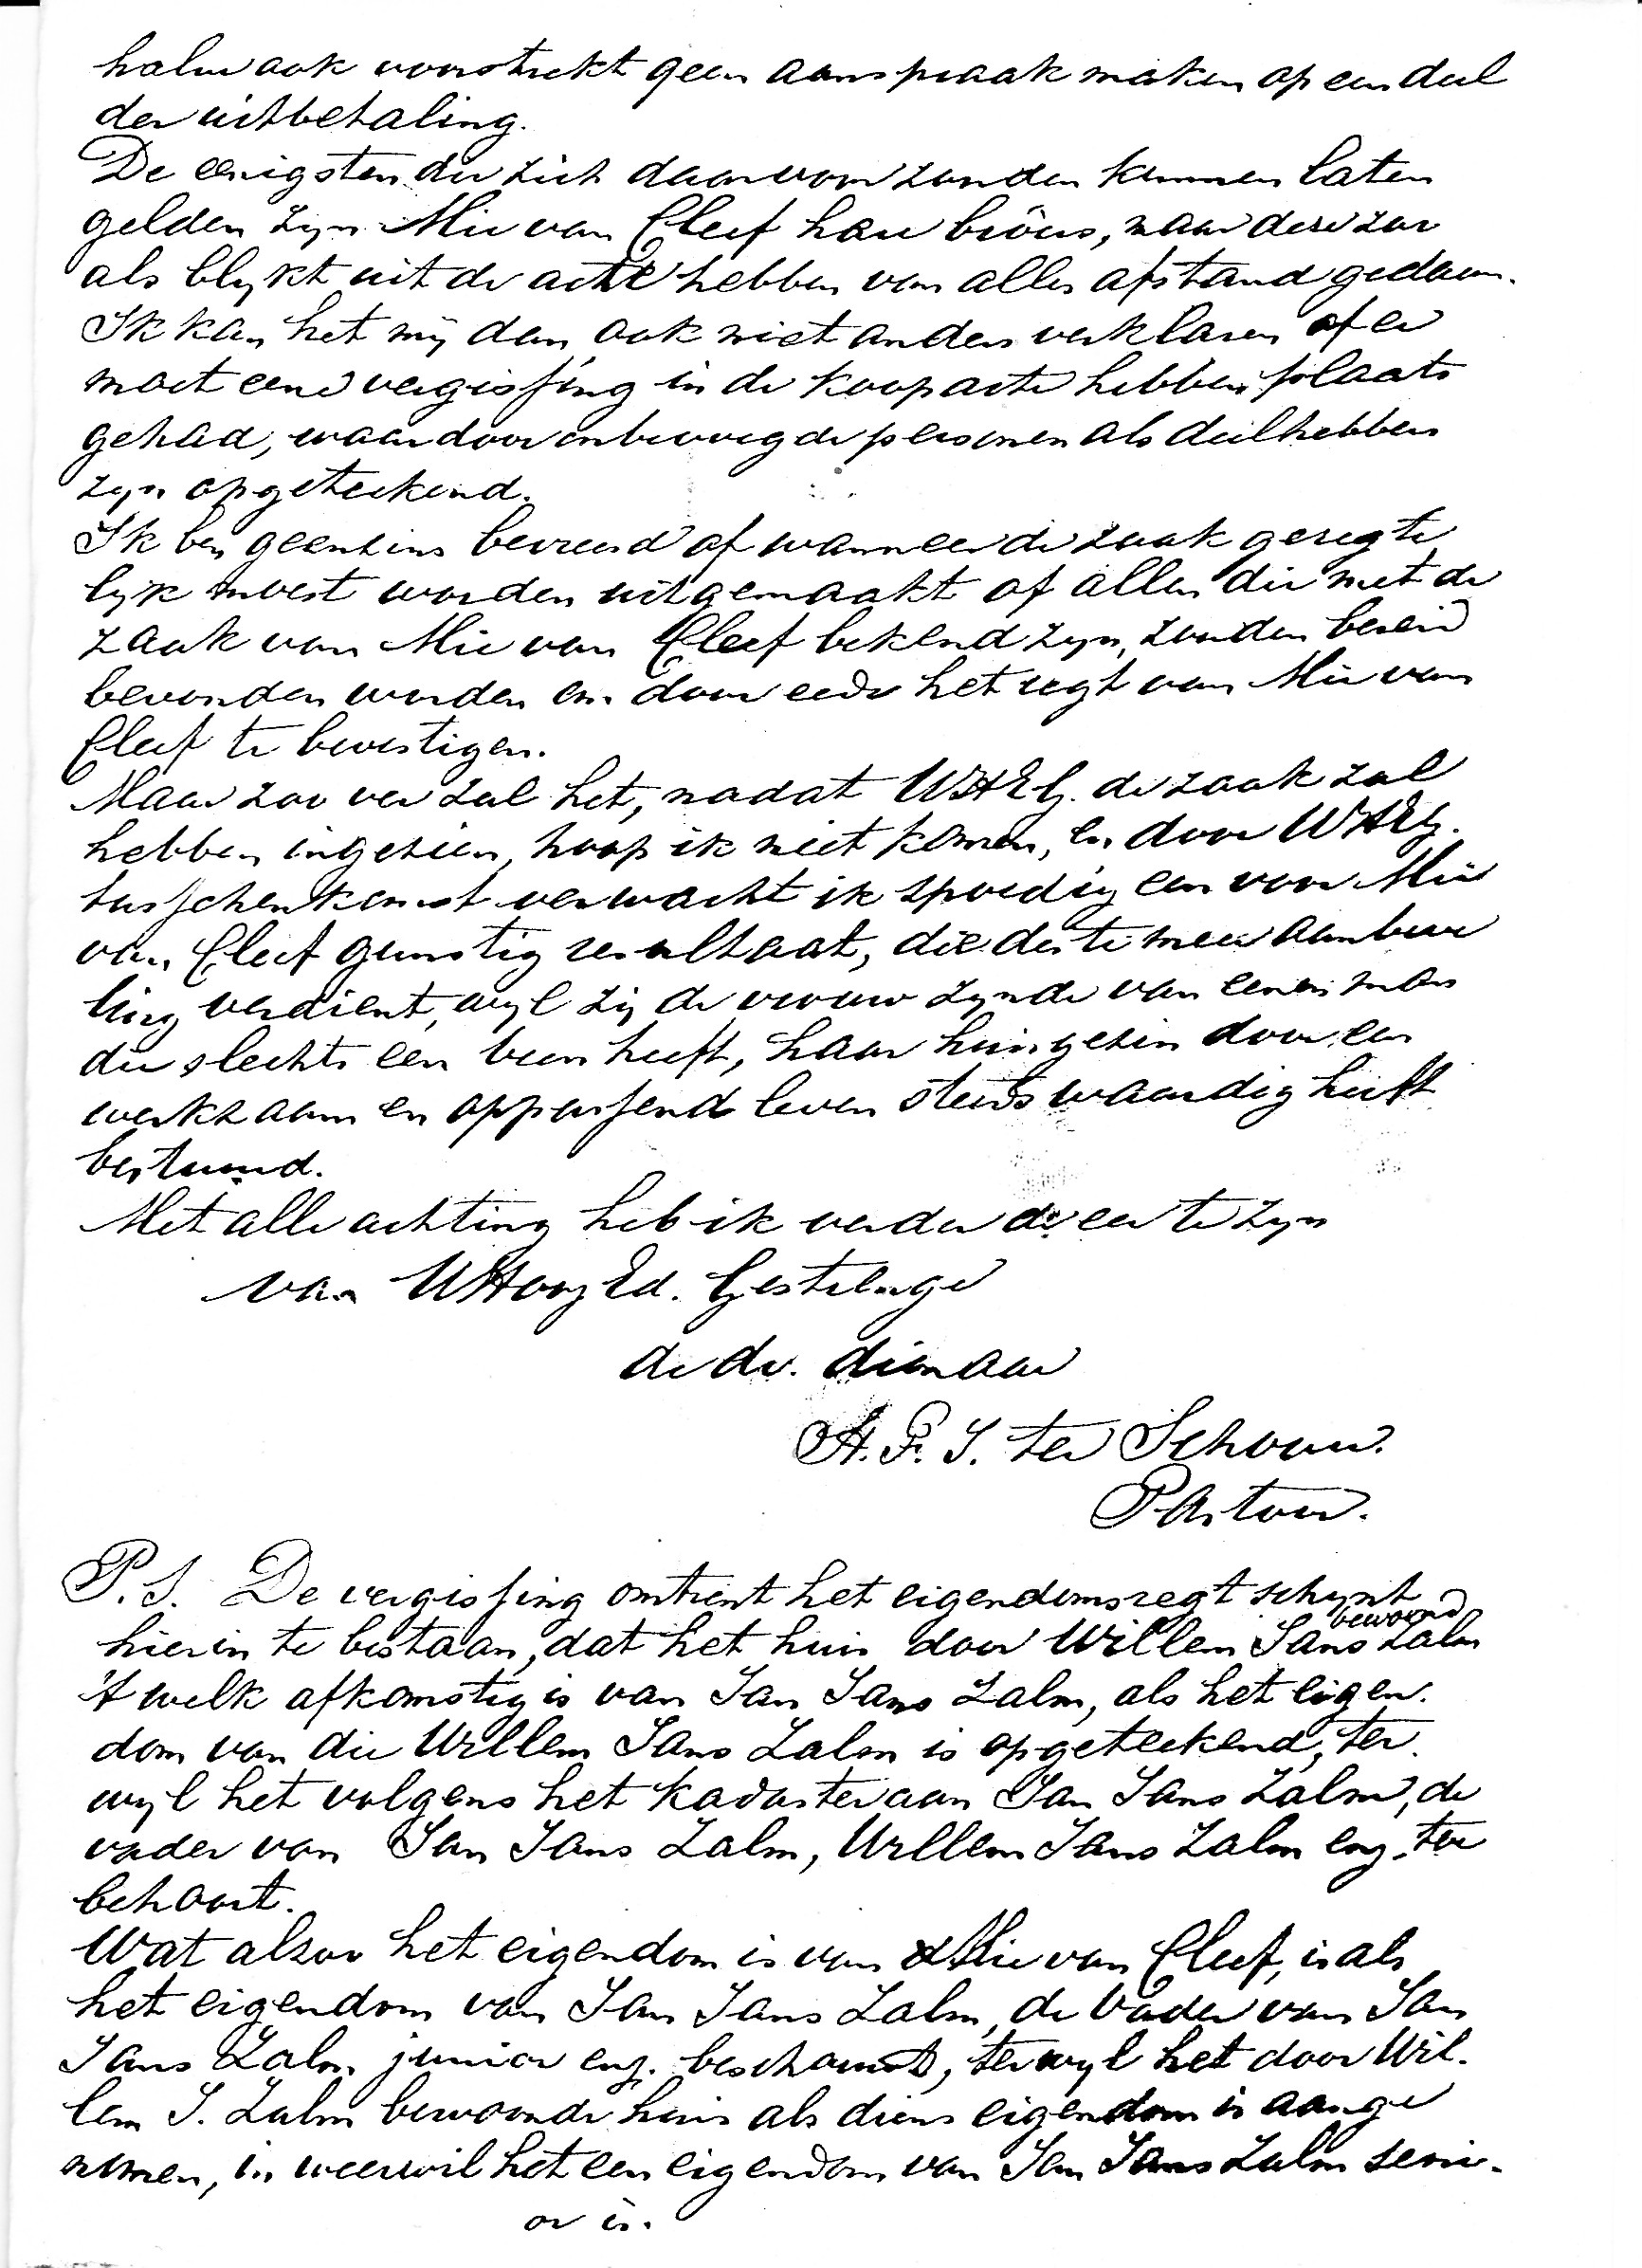 halve ook voorstrekt geen aanspraak maken op een deel
der uitbetaling.
De eenigsten die zich daarvoor zouden kunnen laten
gelden zyn Mie van Cleef hare broêrs, maar deze zoo
als blykt uit de acte hebben van alles afstand gedaan.
Ik kan het mij dan ook niet anders verklaren of er
moet eene vergissing in de koopacte hebben plaats
gehad, waardoor onbevoegde personen als deelhebbers
zyn opgeteekend.
Ik ben geenzins bevreesd of wanneer de zaak geregte
lyk moest worden uitgemaakt of allen die met de
zaak van Mie van Cleef bekend zyn, zouden bereid
bevonden worden om door eede het regt van Mie van
Cleef te bevestigen.
Maar zoo ver zal het, nadat UHEG. de zaak zal
hebben ingezien, hoop ik niet komen, en door UHEG.
tusschenkomst verwacht ik spoedig een voor Mie
van Cleef gunstig resultaat, die des te meer aanbeve
ling verdient, wyl zij de vrouw zynde van eenen man
die slechts een been heeft, haar huisgezin door een
werkzaam en oppassend leven steeds waardig heeft
bestuurd.
Met alle achting heb ik verder de eer te zyn
van UHoogEd. Gestrenge
de dv. dienaar
H. F. J. ter Schouw.
Pastoor.
P.S. De vergissing omtrent het eigendomsregt schynt
hierin te bestaan, dat het huis door Willem Jans Zalm bewoond
't welk afkomstig is van Jan Jans Zalm, als het eigen-
dom van die Willem Jans Zalm is opgeteekend, ter-
wyl het volgens het kadaster aan Jan Jans Zalm, de
vader van Jan Jans Zalm, Willem Jans Zalm enz. toe
behoort.
Wat alzoo het eigendom is van Mie van Cleef, is als
het eigendom van Jan Jans Zalm, de vader van Jan
Jans Zalm junior enz. beschouwd, terwyl het door Wil-
lem J. Zalm bewoonde huis als diens eigendom is aange
nomen, in weerwil het een eigendom van Jan Jans Zalm seni-
or is.